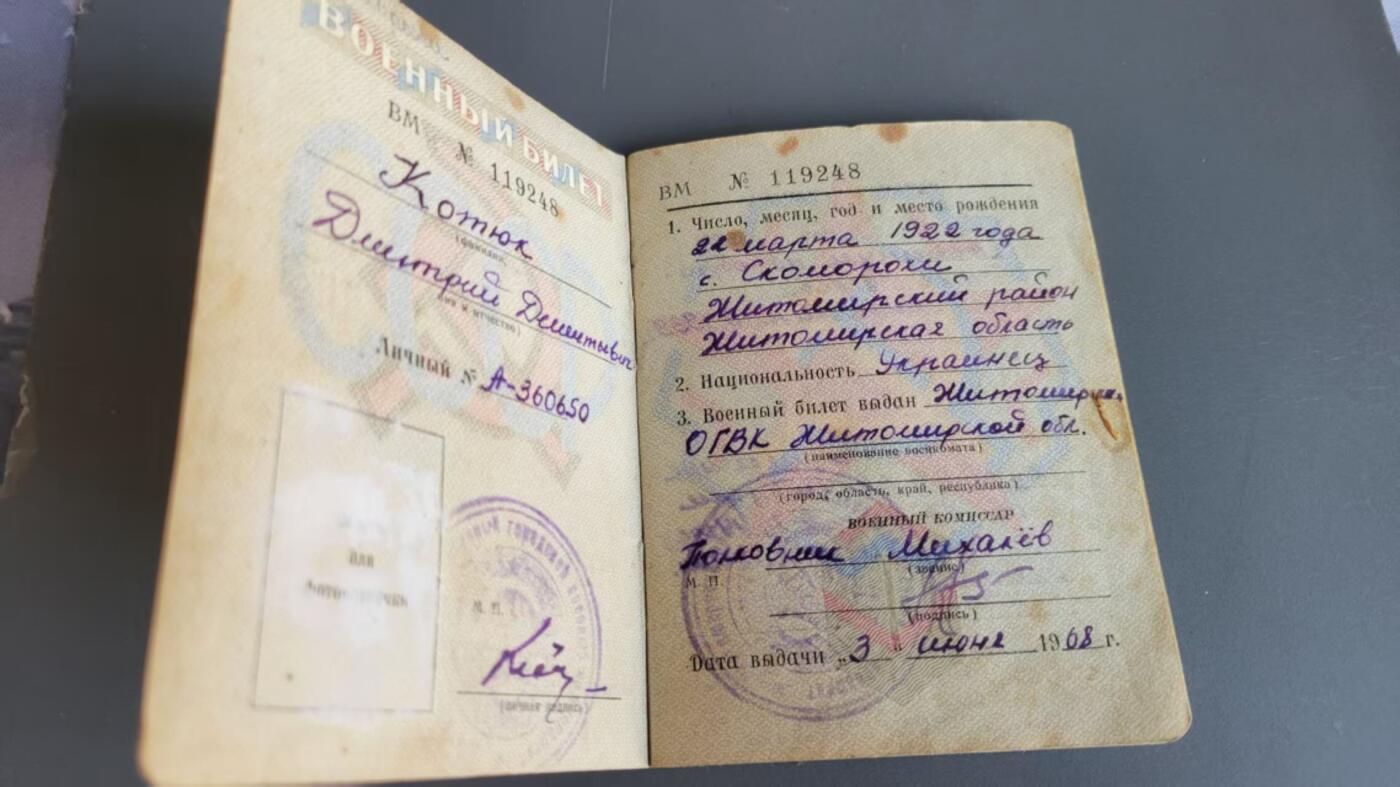 ВОЕННЫЙ БИЛЕТ
ВМ № 119248
Котюк
(фамилия)
Дмитрий Дементьевич
(имя и отчество)
Личный № А-360650
для
фотокарточки
М. П.
(личная подпись)
ВМ № 119248
1. Число, месяц, год и место рождения
22 марта 1922 года
с. Скоморохи
Житомирский район
Житомирская область
2. Национальность Украинец
3. Военный билет выдан
ОГВК Житомирской обл.
(наименование военкомата)
(город, область, край, республика)
ВОЕННЫЙ КОМИССАР
Полковник Михалёв
М. П. (звание)
(подпись)
Дата выдачи „3" июня 1968 г.